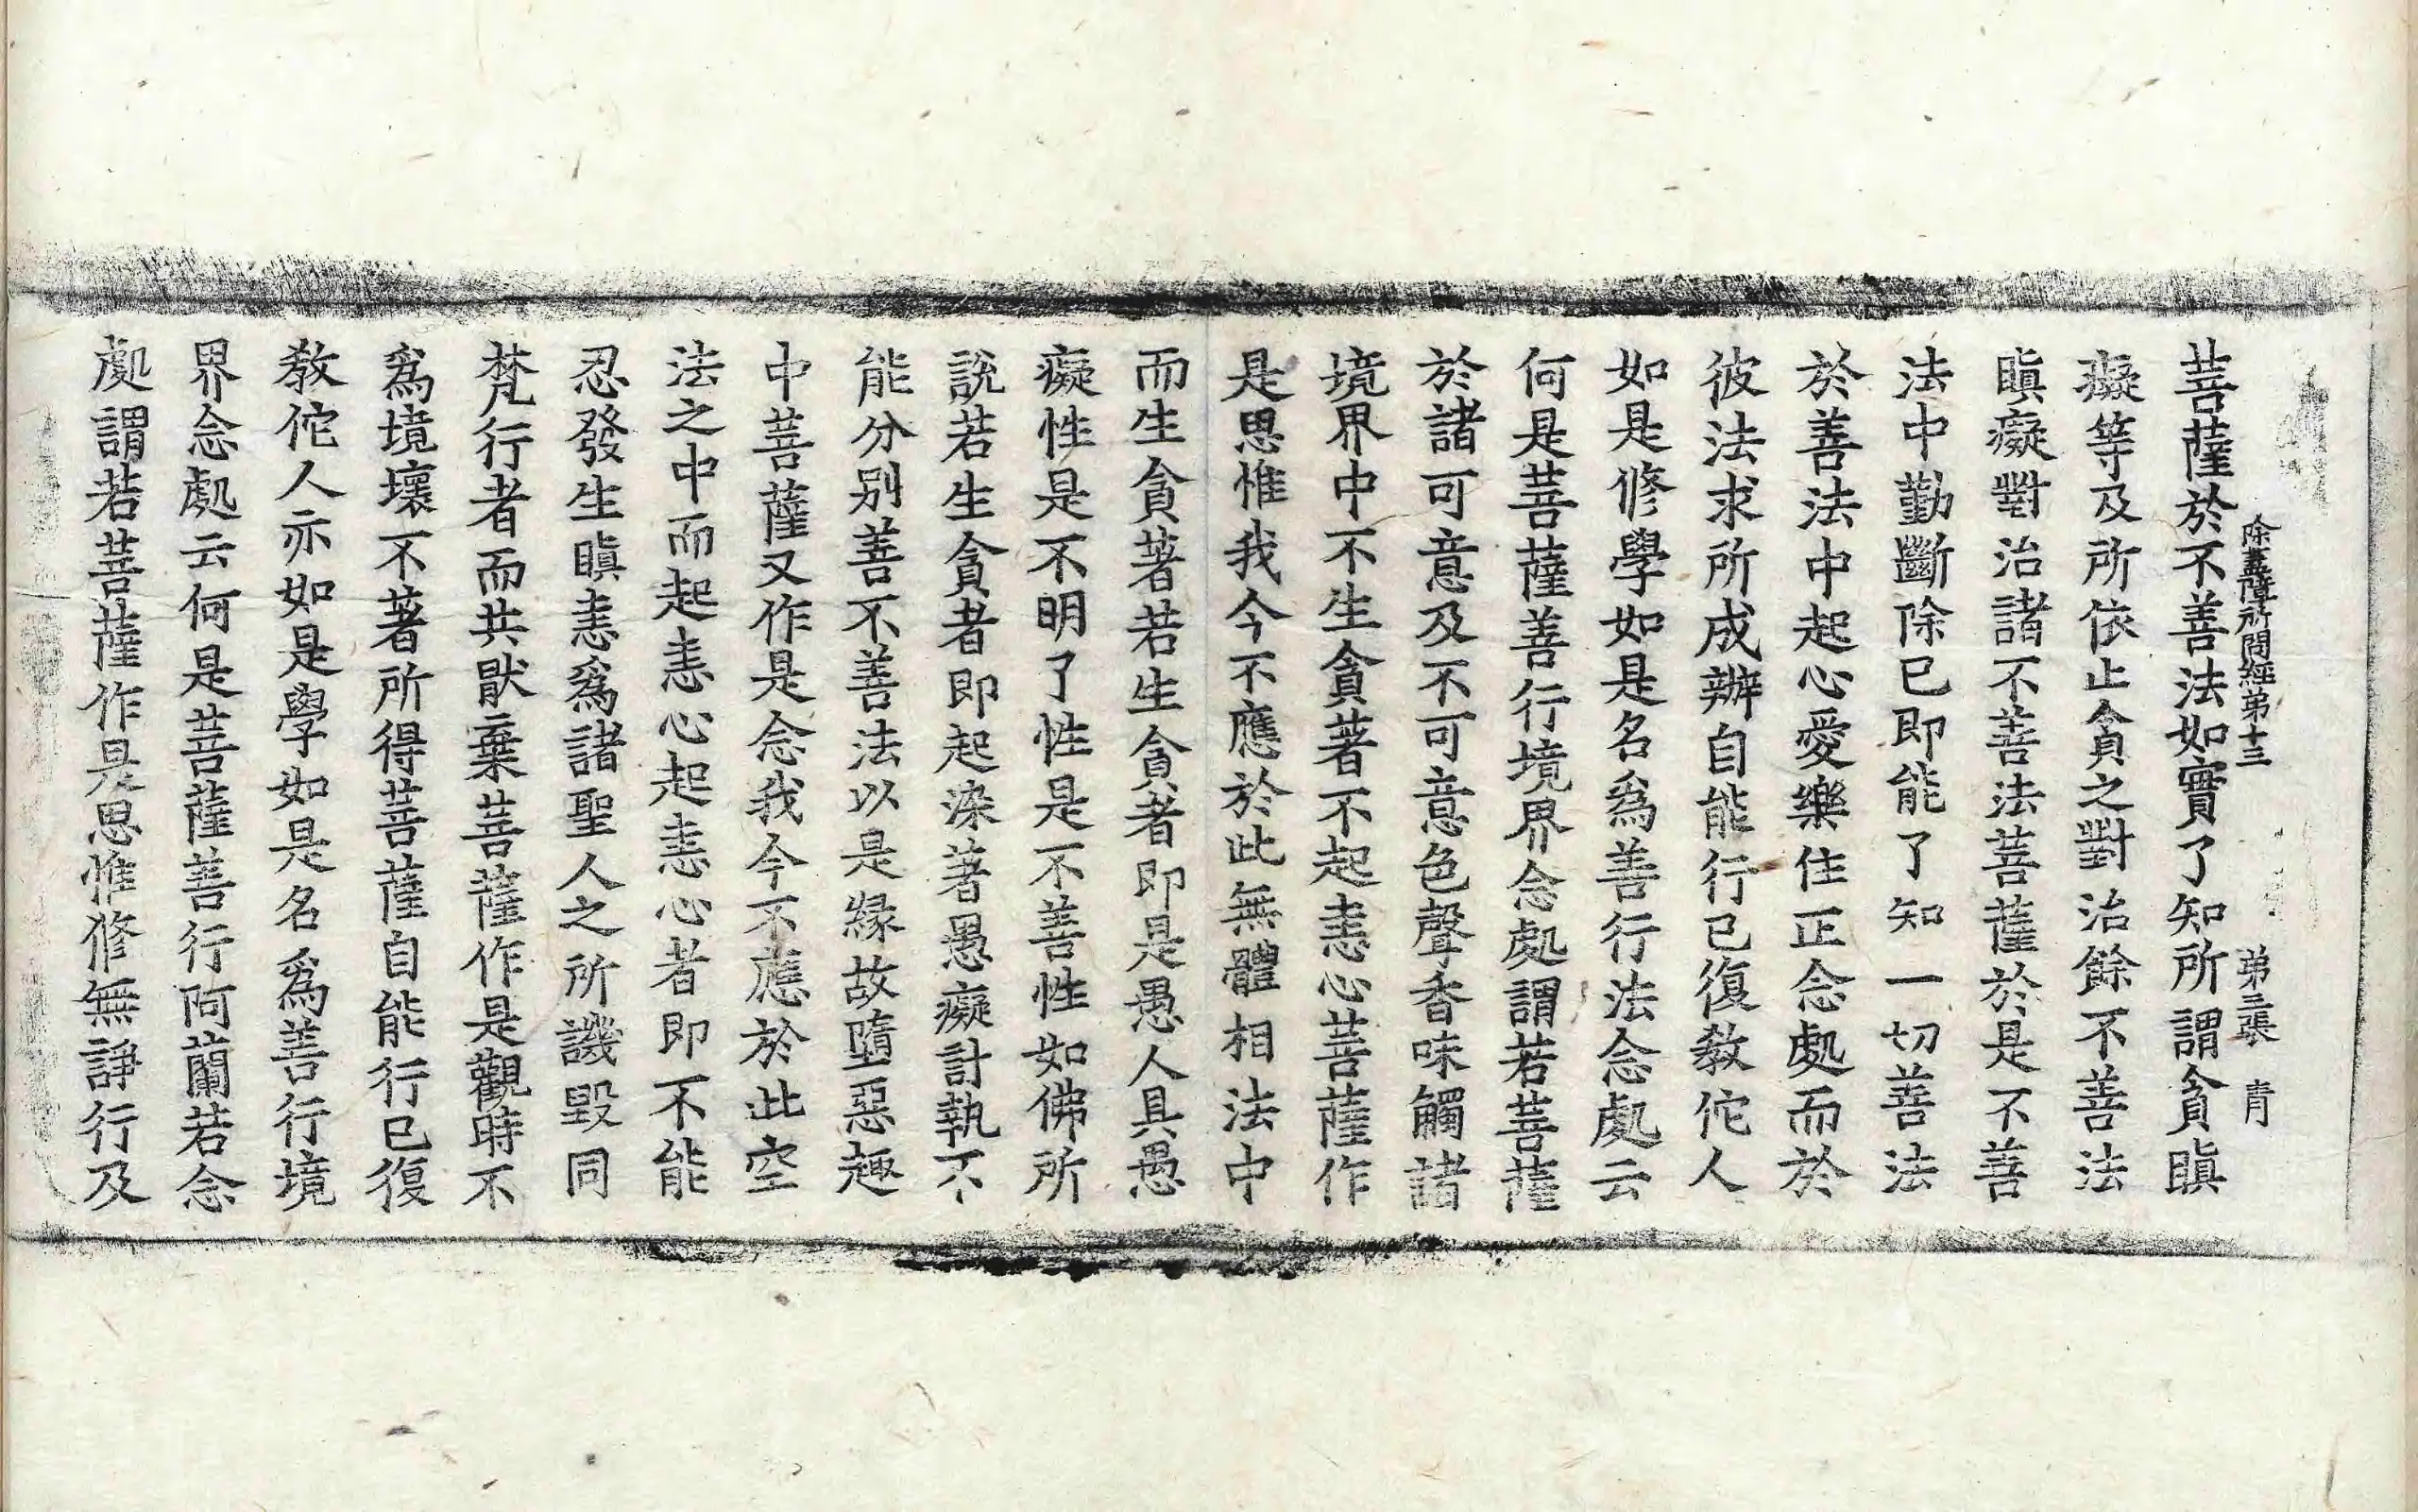 除蓋障所問經第十三　第三張　青
菩薩於不善法如實了知所謂貪瞋
癡等及所依止貪之對治餘不善法
瞋癡對治諸不善法菩薩於是不善
法中勤斷除已即能了知一切善法
於善法中起心愛樂住正念處而於
彼法求所成辦自能行已復教佗人
如是修學如是名爲善行法念處云
何是菩薩善行境界念處謂若菩薩
於諸可意及不可意色聲香味觸諸
境界中不生貪著不起恚心菩薩作
是思惟我今不應於此無體相法中
而生貪著若生貪者即是愚人具愚
癡性是不明了性是不善性如佛所
說若生貪者即起染著愚癡計執不
能分別善不善法以是緣故墮惡趣
中菩薩又作是念我今不應於此空
法之中而起恚心起恚心者即不能
忍發生瞋恚爲諸聖人之所譏毀同
梵行者而共猒棄菩薩作是觀時不
爲境壞不著所得菩薩自能行已復
教佗人亦如是學如是名爲善行境
界念處云何是菩薩善行阿蘭若念
處謂若菩薩作是思惟修無諍行及